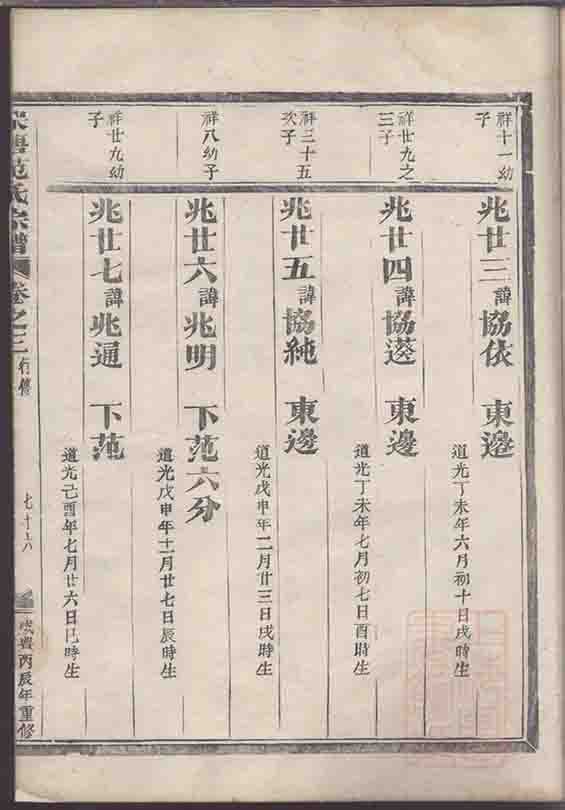 祥十一幼子
兆廿三 諱協依 東邊
道光丁未年六月初十日戌時生
祥廿九之三子
兆廿四 諱協 東邊
道光丁未年七月初七日酉時生
祥三十五次子
兆廿五 諱協純 東邊
道光戊申年二月廿三日戌時生
祥八幼子
兆廿六 諱兆明 下范六分
道光戊申年十一月廿七日辰時生
祥廿九幼子
兆廿七 諱兆通 下范
道光己酉年七月廿六日巳時生
范氏宗譜 卷之三 行傳 七十六 咸豐丙辰年重修